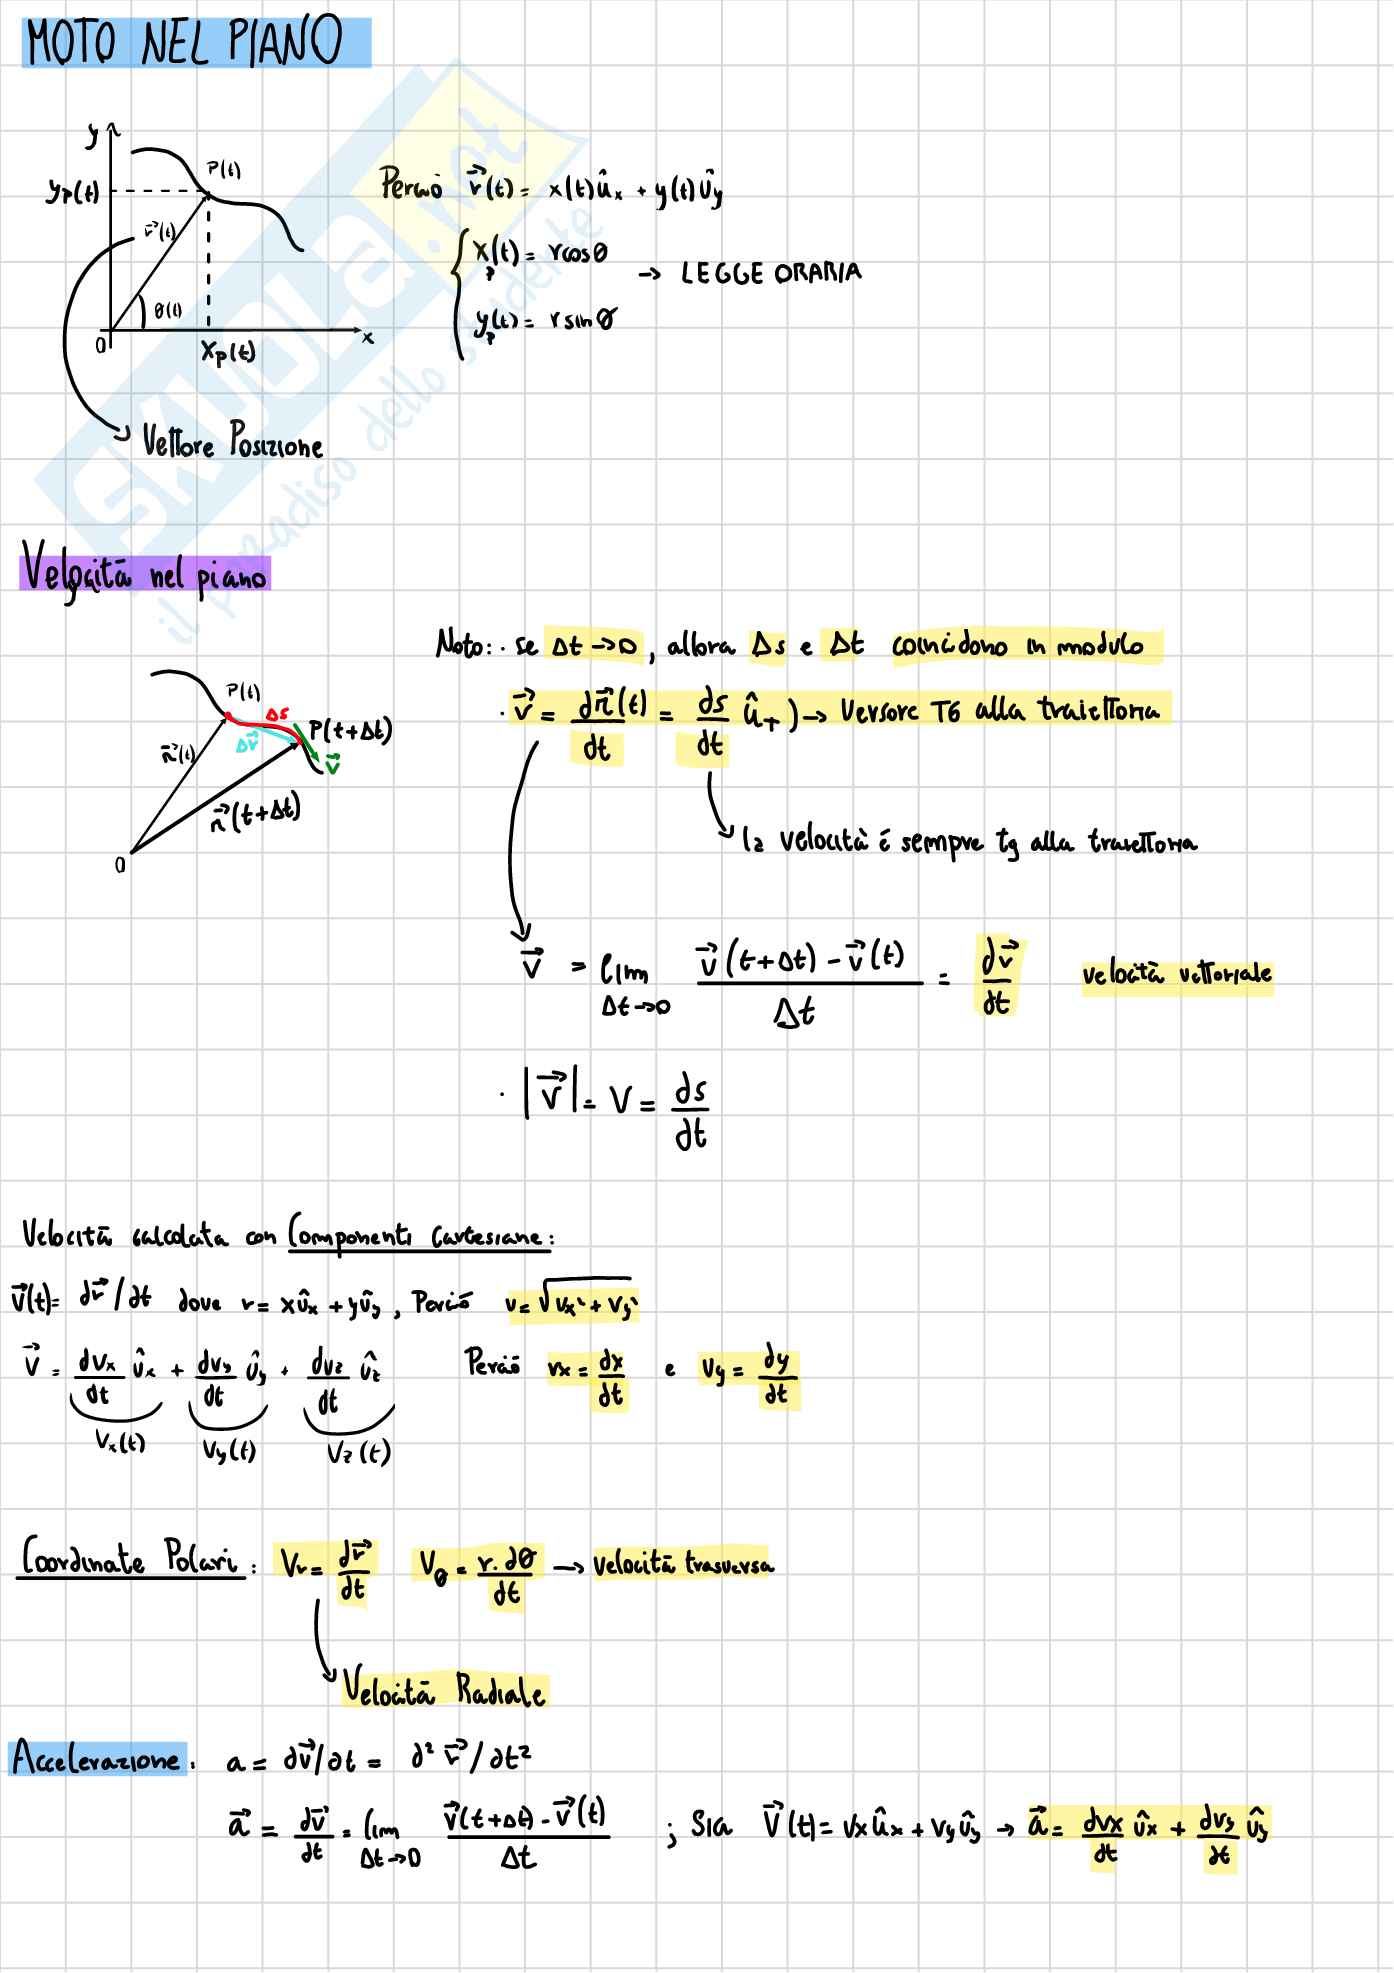 MOTO NEL PIANO
y
P(t)
yₚ(t)
r⃗(t)
θ(t)
0
xₚ(t)
x
Vettore Posizione
Perciò r⃗(t) = x(t)û_x + y(t)û_y
xₚ(t) = r cosθ
→ LEGGE ORARIA
yₚ(t) = r sinθ
SKUOLA.net
il paradiso dello studente
Velocità nel piano
P(t)
Δs
P(t+Δt)
Δr⃗
v⃗
r⃗(t)
r⃗(t+Δt)
0
Noto: · se Δt→0, allora Δs e Δt coincidono in modulo
· v⃗ = dr⃗(t)/dt = ds/dt û_T → Versore TG alla traiettoria
la velocità è sempre tg alla traiettoria
v⃗ = lim Δt→0 v⃗(t+Δt) - v⃗(t) / Δt = dv⃗/dt velocità vettoriale
· |v⃗| = V = ds/dt
Velocità calcolata con Componenti Cartesiane:
v⃗(t) = dr⃗/dt dove r = xû_x + yû_y, Perciò v = √(v_x² + v_y²)
v⃗ = dv_x/dt û_x + dv_y/dt û_y + dv_z/dt û_z Perciò v_x = dx/dt e v_y = dy/dt
V_x(t) V_y(t) V_z(t)
Coordinate Polari: V_r = dr⃗/dt V_θ = r·dθ/dt → velocità trasversa
Velocità Radiale
Accelerazione: a = dv⃗/dt = d² r⃗/dt²
a⃗ = dv⃗/dt = lim Δt→0 v⃗(t+Δt) - v⃗(t) / Δt ; Sia v⃗(t) = v_x û_x + v_y û_y → a⃗ = dv_x/dt û_x + dv_y/dt û_y